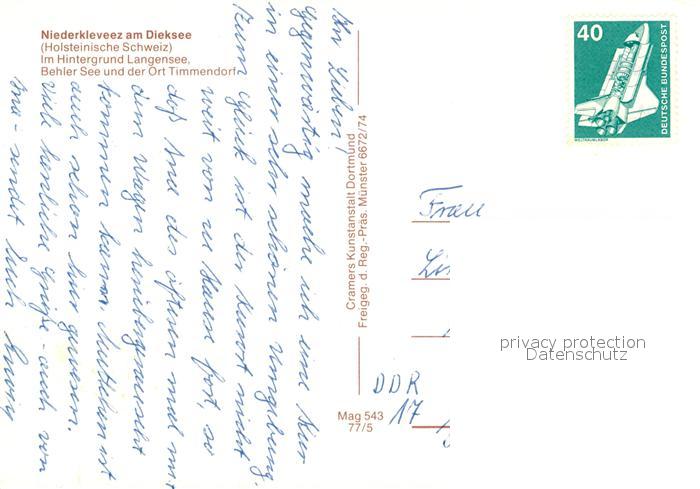 Niederkleveez am Dieksee
(Holsteinische Schweiz)
Im Hintergrund Langensee,
Behler See und der Ort Timmendorf
Ihr Lieben!
Gegenwärtig mache ich eine Kur
in einer sehr schönen Umgebung.
Zum Glück ist der Kurort nicht
weit von zu Hause fort, so
daß Ana des öfteren mal mit
dem Wagen herübergerauscht
kommen kann.
auch schon hier gewesen.
Viele herzliche Grüße - auch von
sendet Euch
Cramers Kunstanstalt Dortmund
Freigeg. d. Reg.-Präs. Münster 6672/74
Mag 543
77/5
40
DEUTSCHE BUNDESPOST
WELTRAUMLABOR
Frau
DDR
17
privacy protection
Datenschutz